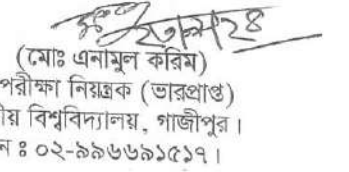 (মোঃ এনামুল করিম)
পরীক্ষা নিয়ন্ত্রক (ভারপ্রাপ্ত)
বিশ্ববিদ্যালয়, গাজীপুর।
০২-৯৯৬৬৯১৫১৭।